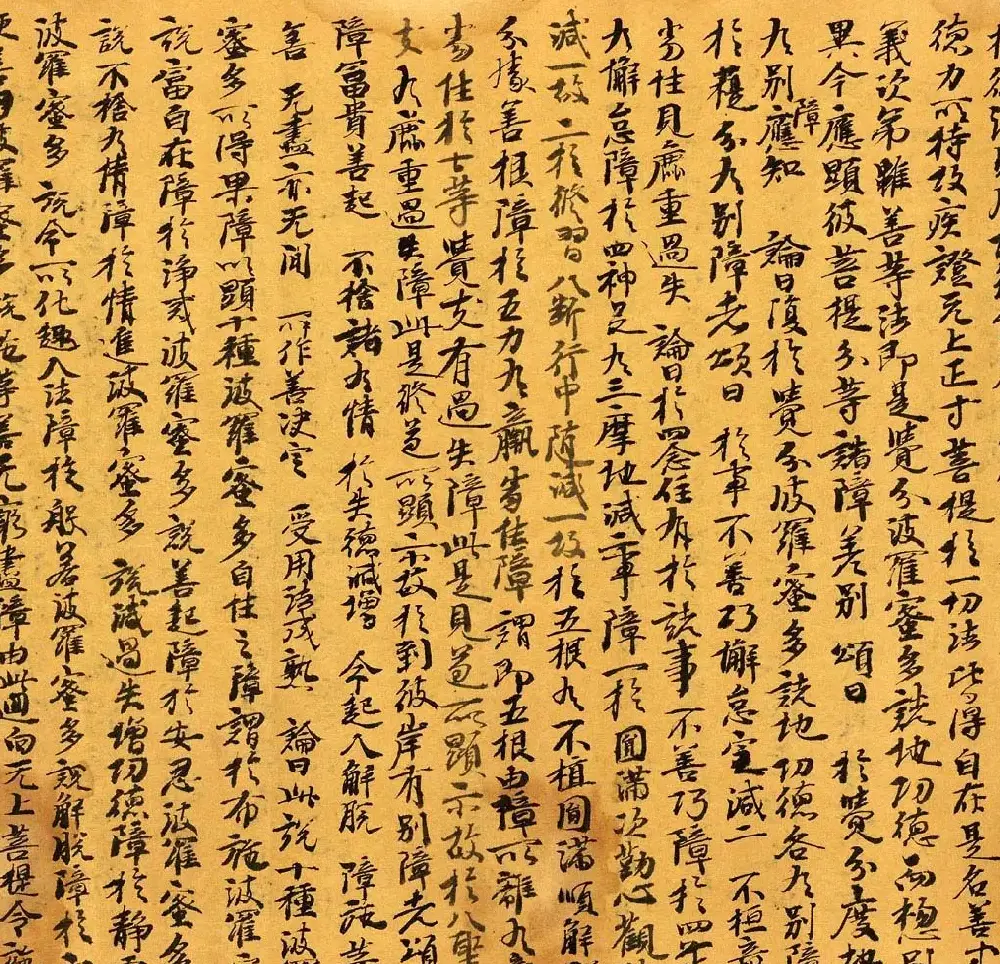 德力所持故疾證无上正等菩提於一切法皆得自在是名善
義次第雖善等法即是覺分波羅蜜多諸地功德而惣別
異今應顯彼菩提分等諸障差別頌曰 於覺分度地
有別障應知 論曰復於覺分波羅蜜多諸地功德各有別障
於菩提分有別障者頌曰 於事不善巧懈怠定減二 不植
劣性見麁重過失 論曰於四念住有於諸事不善巧障於四
有懈怠障於四神足有三摩地減二事障一於圓滿欲勤心觀
減一故二於修習八斷行中隨減一故於五根有不植圓滿順解
分勝善根障於五力有羸劣性障謂即五根由障所雜有
劣性於七等覺支有過失障此是見道所顯示故於八聖
支有麁重過失障此是修道所顯示故於到彼岸有別障者頌
障富貴善起 不捨諸有情 於失德減增 令起入解脫 障施
善 无盡亦无間 所作善決定 受用法成熟 論曰此說十種波
蜜多所得果障以顯十種波羅蜜多自性之障謂於布施波羅
說富自在障於淨戒波羅蜜多說善起障於安忍波羅蜜多
說不捨有情障於精進波羅蜜多 說減過失增功德障於靜
波羅蜜多說令所化趣入法障於般若波羅蜜多說解脫障於
善巧波羅蜜多說施等善无窮盡障由此迴向无上菩提令